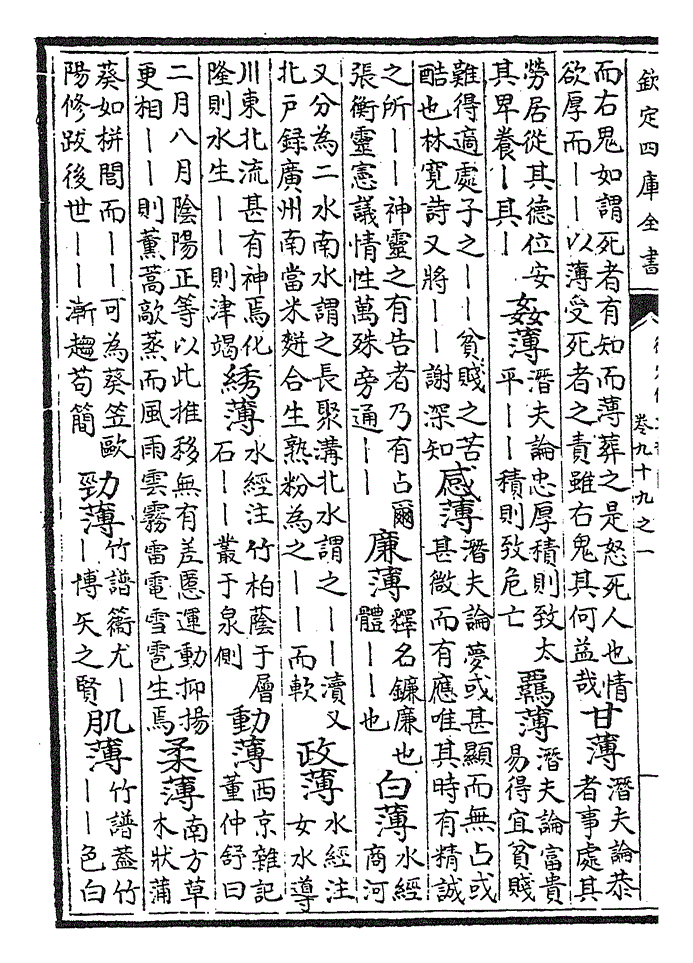 欽定四庫全書
卷九十九之一
而右鬼如謂死者有知而薄葬之是怒死人也情
欲厚而丨丨以薄受死者之責雖右鬼其何益哉
甘薄
潛夫論恭
者事處其
勞居從其德位安
其卑養丨其丨
姦薄
潛夫論忠厚積則致太
平丨丨積則致危亡
羈薄
潛夫論富貴
易得宜貧賤
難得適處子之丨丨貧賤之苦
酷也林寛詩又將丨丨謝深知
感薄
潛夫論夢或甚顯而無占或
甚微而有應唯其時有精誠
之所丨丨神靈之有告者乃有占爾
張衡靈憲議情性萬殊旁通丨丨
廉薄
釋名鐮廉也
體丨丨也
白薄
水經
商河
又分為二水南水謂之長聚溝北水謂之丨丨瀆又
北戸録廣州南當米麨合生熟粉為之丨丨而軟
政薄
水經注
女水導
川東北流甚有神焉化
隆則水生丨丨則津竭
綉薄
水經注竹柏蔭于層
石丨丨叢于泉側
動薄
西京雜記
董仲舒曰
二月八月陰陽正等以此推移無有差慝運動抑揚
更相丨丨則薰蒿歊蒸而風雨雲霧雷電雪雹生焉
柔薄
南方草
木狀蒲
葵如栟閭而丨丨可為葵笠歐
陽修跋後世丨丨漸趨苟簡
勁薄
竹譜籥尤丨
丨博矢之賢
肌薄
竹譜蓋竹
丨丨色白